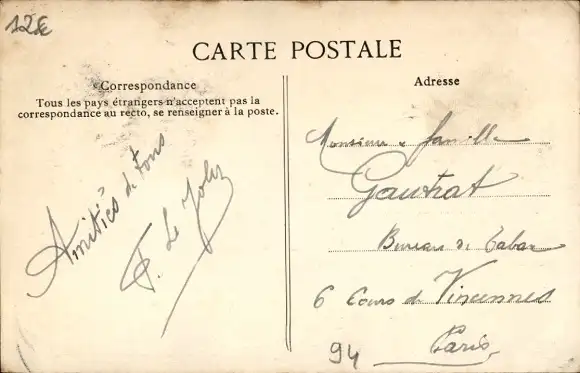 12€
CARTE POSTALE
Correspondance
Tous les pays étrangers n'acceptent pas la
correspondance au recto, se renseigner à la poste.
Amitiés de tous
F. Le Joly
Adresse
Monsieur & famille
Gautrat
Bureau de Tabac
6 Cours de Vincennes
Paris
94